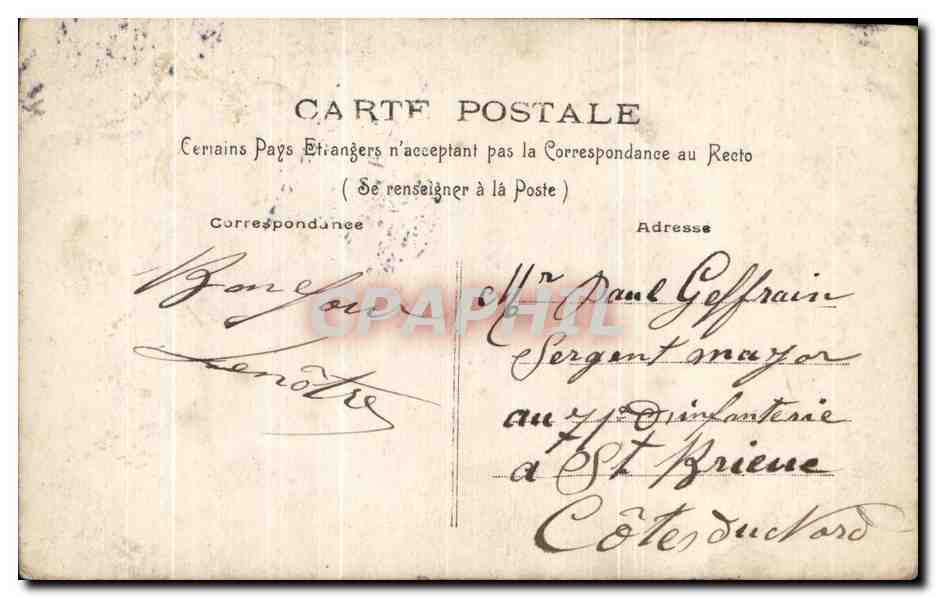 CARTE POSTALE
Certains Pays Etrangers n'acceptant pas la Correspondance au Recto
( Se renseigner à lá Poste )
Correspondance
Adresse
Bon Jour
Lenôtre
Mr Paul Geffrain
Sergent major
au 71e D'infanterie
à St Brieuc
Côtes du Nord
CPAPHIL